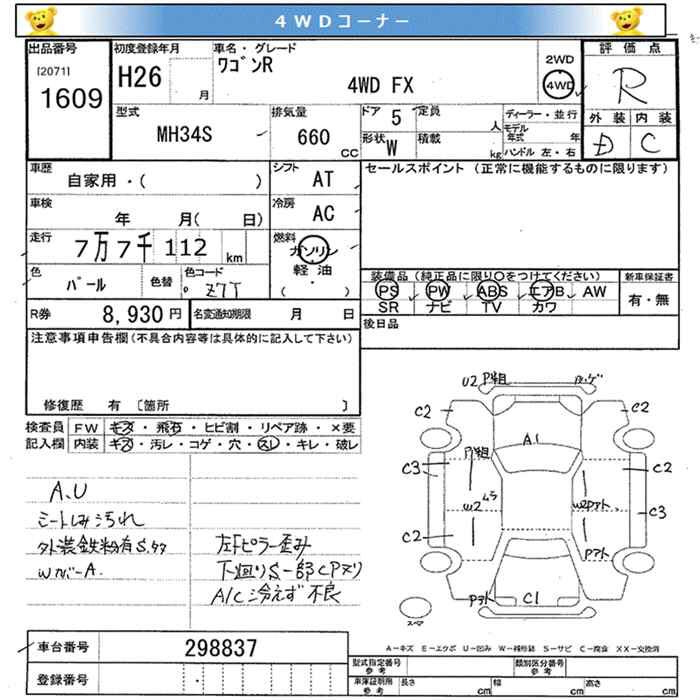 4WDコーナー
出品番号
[2071]
1609
初度登録年月
H26
月
車名・グレード
ワゴンR
4WD FX
2WD
4WD
評価点
R
外装 内装
D C
型式
MH34S
排気量
660
CC
ドア
5
定員
人
形状
W
積載
kg
ディーラー・並行
モデル年式 年
ハンドル 左・右
車歴
自家用・( )
シフト
AT
セールスポイント (正常に機能するものに限ります)
車検
年 月( 日)
冷房
AC
走行
7万7千112 km
燃料
ガソリン
軽油
( ・ )
色
パール
色替
色コード
Z7T
装備品 (純正品に限り○をつけてください)
PS PW ABS エアB AW
SR ナビ TV カワ
新車保証書
有・無
R券
8,930円
名変通知期限 月 日
後日品
注意事項申告欄(不具合内容等は具体的に記入して下さい)
修復歴 有 〔箇所 〕
検査員記入欄
FW キズ・飛石・ヒビ割・リペア跡・×要
内装 キズ・汚レ・コゲ・穴・スレ・キレ・破レ
A、U
シートしみ汚れ
外装鉄粉有S.タタ
Wカバー A.
左下ピラー歪み
下廻りS一部CPヌリ
A/C冷えず不良
U2
C2
C2
A1
C3
C2
W2 ムラ
C3
C2
C1
スーマ
車台番号
298837
登録番号
A−キズ E−エクボ U−凹み W−補修跡 S−サビ C−腐食 XX−交換済
型式指定番号
参考
類別区分番号
参考
車庫証明用
参考
長さ cm 幅 cm 高さ cm